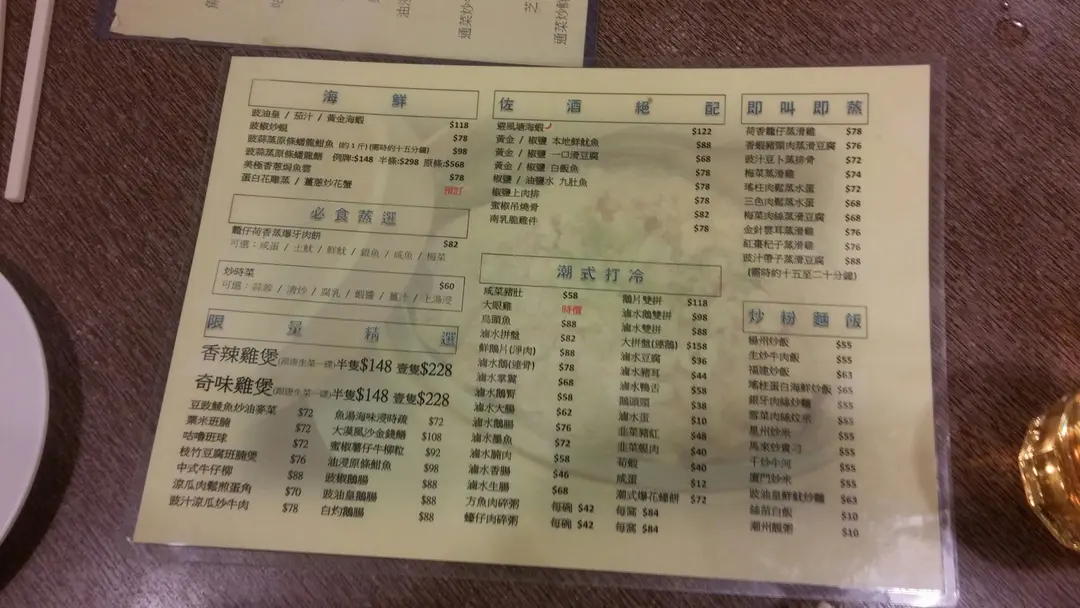 海鮮
豉油皇 / 茄汁 / 黃金海蝦 $118
豉椒炒蜆 $78
豉蒜蒸原條蟠龍鮕魚 (約1斤)(需時約十五分鐘) $98
豉蒜蒸原條蟠龍鱔 例牌:$148 半條:$298 原條:$568
美極香蔥焗魚雲 $78
蛋白花雕蒸 / 薑蔥炒花蟹 預訂
必食蒸選
籠仔荷香蒸爆牙肉餅 $82
可選：咸蛋 / 土魷 / 鮮魷 / 銀魚 / 咸魚 / 梅菜
炒時菜 $60
可選：蒜蓉 / 清炒 / 腐乳 / 蝦醬 / 薑汁 / 上湯浸
限量精選
香辣雞煲(跟唐生菜一碟)半隻$148 壹隻$228
奇味雞煲(跟唐生菜一碟)半隻$148 壹隻$228
豆豉鯪魚炒油麥菜 $72
粟米班腩 $72
咕嚕班球 $72
枝竹豆腐班腩煲 $76
中式牛仔柳 $88
涼瓜肉鬆煎蛋角 $70
豉汁涼瓜炒牛肉 $78
魚湯海味浸時蔬 $72
大漠風沙金錢鱔 $108
蜜椒薯仔牛柳粒 $92
油浸原條鮕魚 $98
豉椒鵝腸 $88
豉油皇鵝腸 $88
白灼鵝腸 $88
佐酒絕配
避風塘海蝦 $122
黃金 / 椒鹽 本地鮮魷魚 $88
黃金 / 椒鹽 一口滑豆腐 $68
黃金 / 椒鹽 白飯魚 $78
椒鹽 / 油鹽水 九肚魚 $78
椒鹽上肉排 $78
蜜椒吊燒骨 $82
南乳脆雞件 $78
潮式打冷
咸菜豬肚 $58
大眼雞 時價
烏頭魚 $88
滷水拼盤 $82
鮮鵝片(淨肉) $88
滷水鵝(連骨) $78
滷水掌翼 $68
滷水鵝腎 $58
滷水大腸 $62
滷水鵝腸 $76
滷水墨魚 $72
滷水腩肉 $58
滷水香腸 $46
滷水生腸 $68
方魚肉碎粥 每碗 $42 每窩 $84
蠔仔肉碎粥 每碗 $42 每窩 $84
鵝片雙拼 $118
滷水鵝雙拼 $98
滷水雙拼 $88
大拼盤(連鵝) $158
滷水豆腐 $36
滷水豬耳 $44
滷水鴨舌 $58
鵝頭頸 $38
滷水蛋 $10
韭菜豬紅 $48
韭菜蜆肉 $40
筍蝦 $40
咸蛋 $12
潮式爆花蠔餅 $72
即叫即蒸
荷香籠仔蒸滑雞 $78
香蝦豬頸肉蒸滑豆腐 $76
豉汁豆卜蒸排骨 $72
梅菜蒸滑雞 $74
瑤柱肉鬆蒸水蛋 $72
三色肉鬆蒸水蛋 $68
梅菜肉絲蒸滑豆腐 $68
金針雲耳蒸滑雞 $76
紅棗杞子蒸滑雞 $76
豉汁帶子蒸滑豆腐 $88
(需時約十五至二十分鐘)
炒粉麵飯
楊州炒飯 $55
生炒牛肉飯 $55
福建炒飯 $63
瑤柱蛋白海鮮炒飯 $65
銀牙肉絲炒麵 $55
雪菜肉絲炆米 $55
星州炒米 $55
馬來炒貴刁 $55
干炒牛河 $55
廈門炒米 $55
豉油皇鮮魷炒麵 $63
絲苗白飯 $10
潮州靚粥 $10
通菜炒